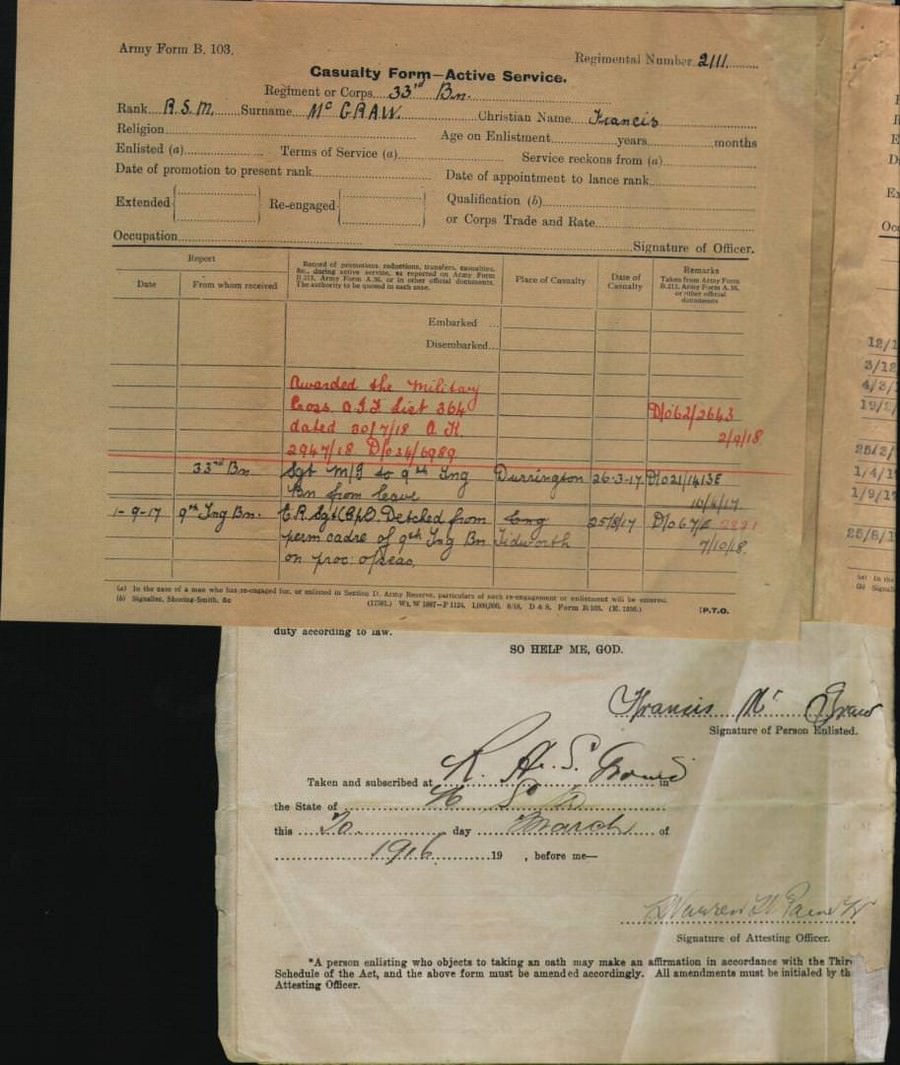 Army Form B. 103.
Regimental Number 2111
Casualty Form—Active Service.
Regiment or Corps 33rd Bn.
Rank R.S.M. Surname Mc GRAW. Christian Name Francis
Religion
Age on Enlistment years months
Enlisted (a) Terms of Service (a) Service reckons from (a)
Date of promotion to present rank Date of appointment to lance rank
Extended Re-engaged Qualification (b)
or Corps Trade and Rate
Occupation Signature of Officer.
Report
Date From whom received
Record of promotions, reductions, transfers, casualties, &c., during active service, as reported on Army Form B.213, Army Form A.36, or in other official documents. The authority to be quoted in each case.
Place of Casualty
Date of Casualty
Remarks
Taken from Army Form B.213, Army Form A.36, or other official documents
Embarked ...
Disembarked...
Awarded the Military
Cross A.I.F List 364 D/062/2643
dated 30/7/18 A.K. 2/9/18
2947/18 D/034/6989
33rd Bn Sgt M/I to 9th Tng Durrington 26-3-17 D/021/1413E
Bn from leave 10/4/17
1-9-17 9th Tng Bn. E.R. Sgt (Cpl). Detched from Eng 25/8/17 D/067/E 2221
perm cadre of 9th Tng Bn Tidworth 7/10/18
on proc. o/seas.
(a) In the case of a man who has re-engaged for, or enlisted in Section D, Army Reserve, particulars of such re-engagement or enlistment will be entered.
(b) Signaller, Shoeing-Smith, &c
[P.T.O.
12/1
3/12
4/3/1
19/2/
25/2/
1/4/1
1/9/1
25/8/1
duty according to law.
SO HELP ME, GOD.
Francis Mc Graw
Signature of Person Enlisted.
Taken and subscribed at R. A. S. Ground in
the State of
this 20 day March of
1916 19 , before me—
Signature of Attesting Officer.
*A person enlisting who objects to taking an oath may make an affirmation in accordance with the Third
Schedule of the Act, and the above form must be amended accordingly. All amendments must be initialed by th
Attesting Officer.